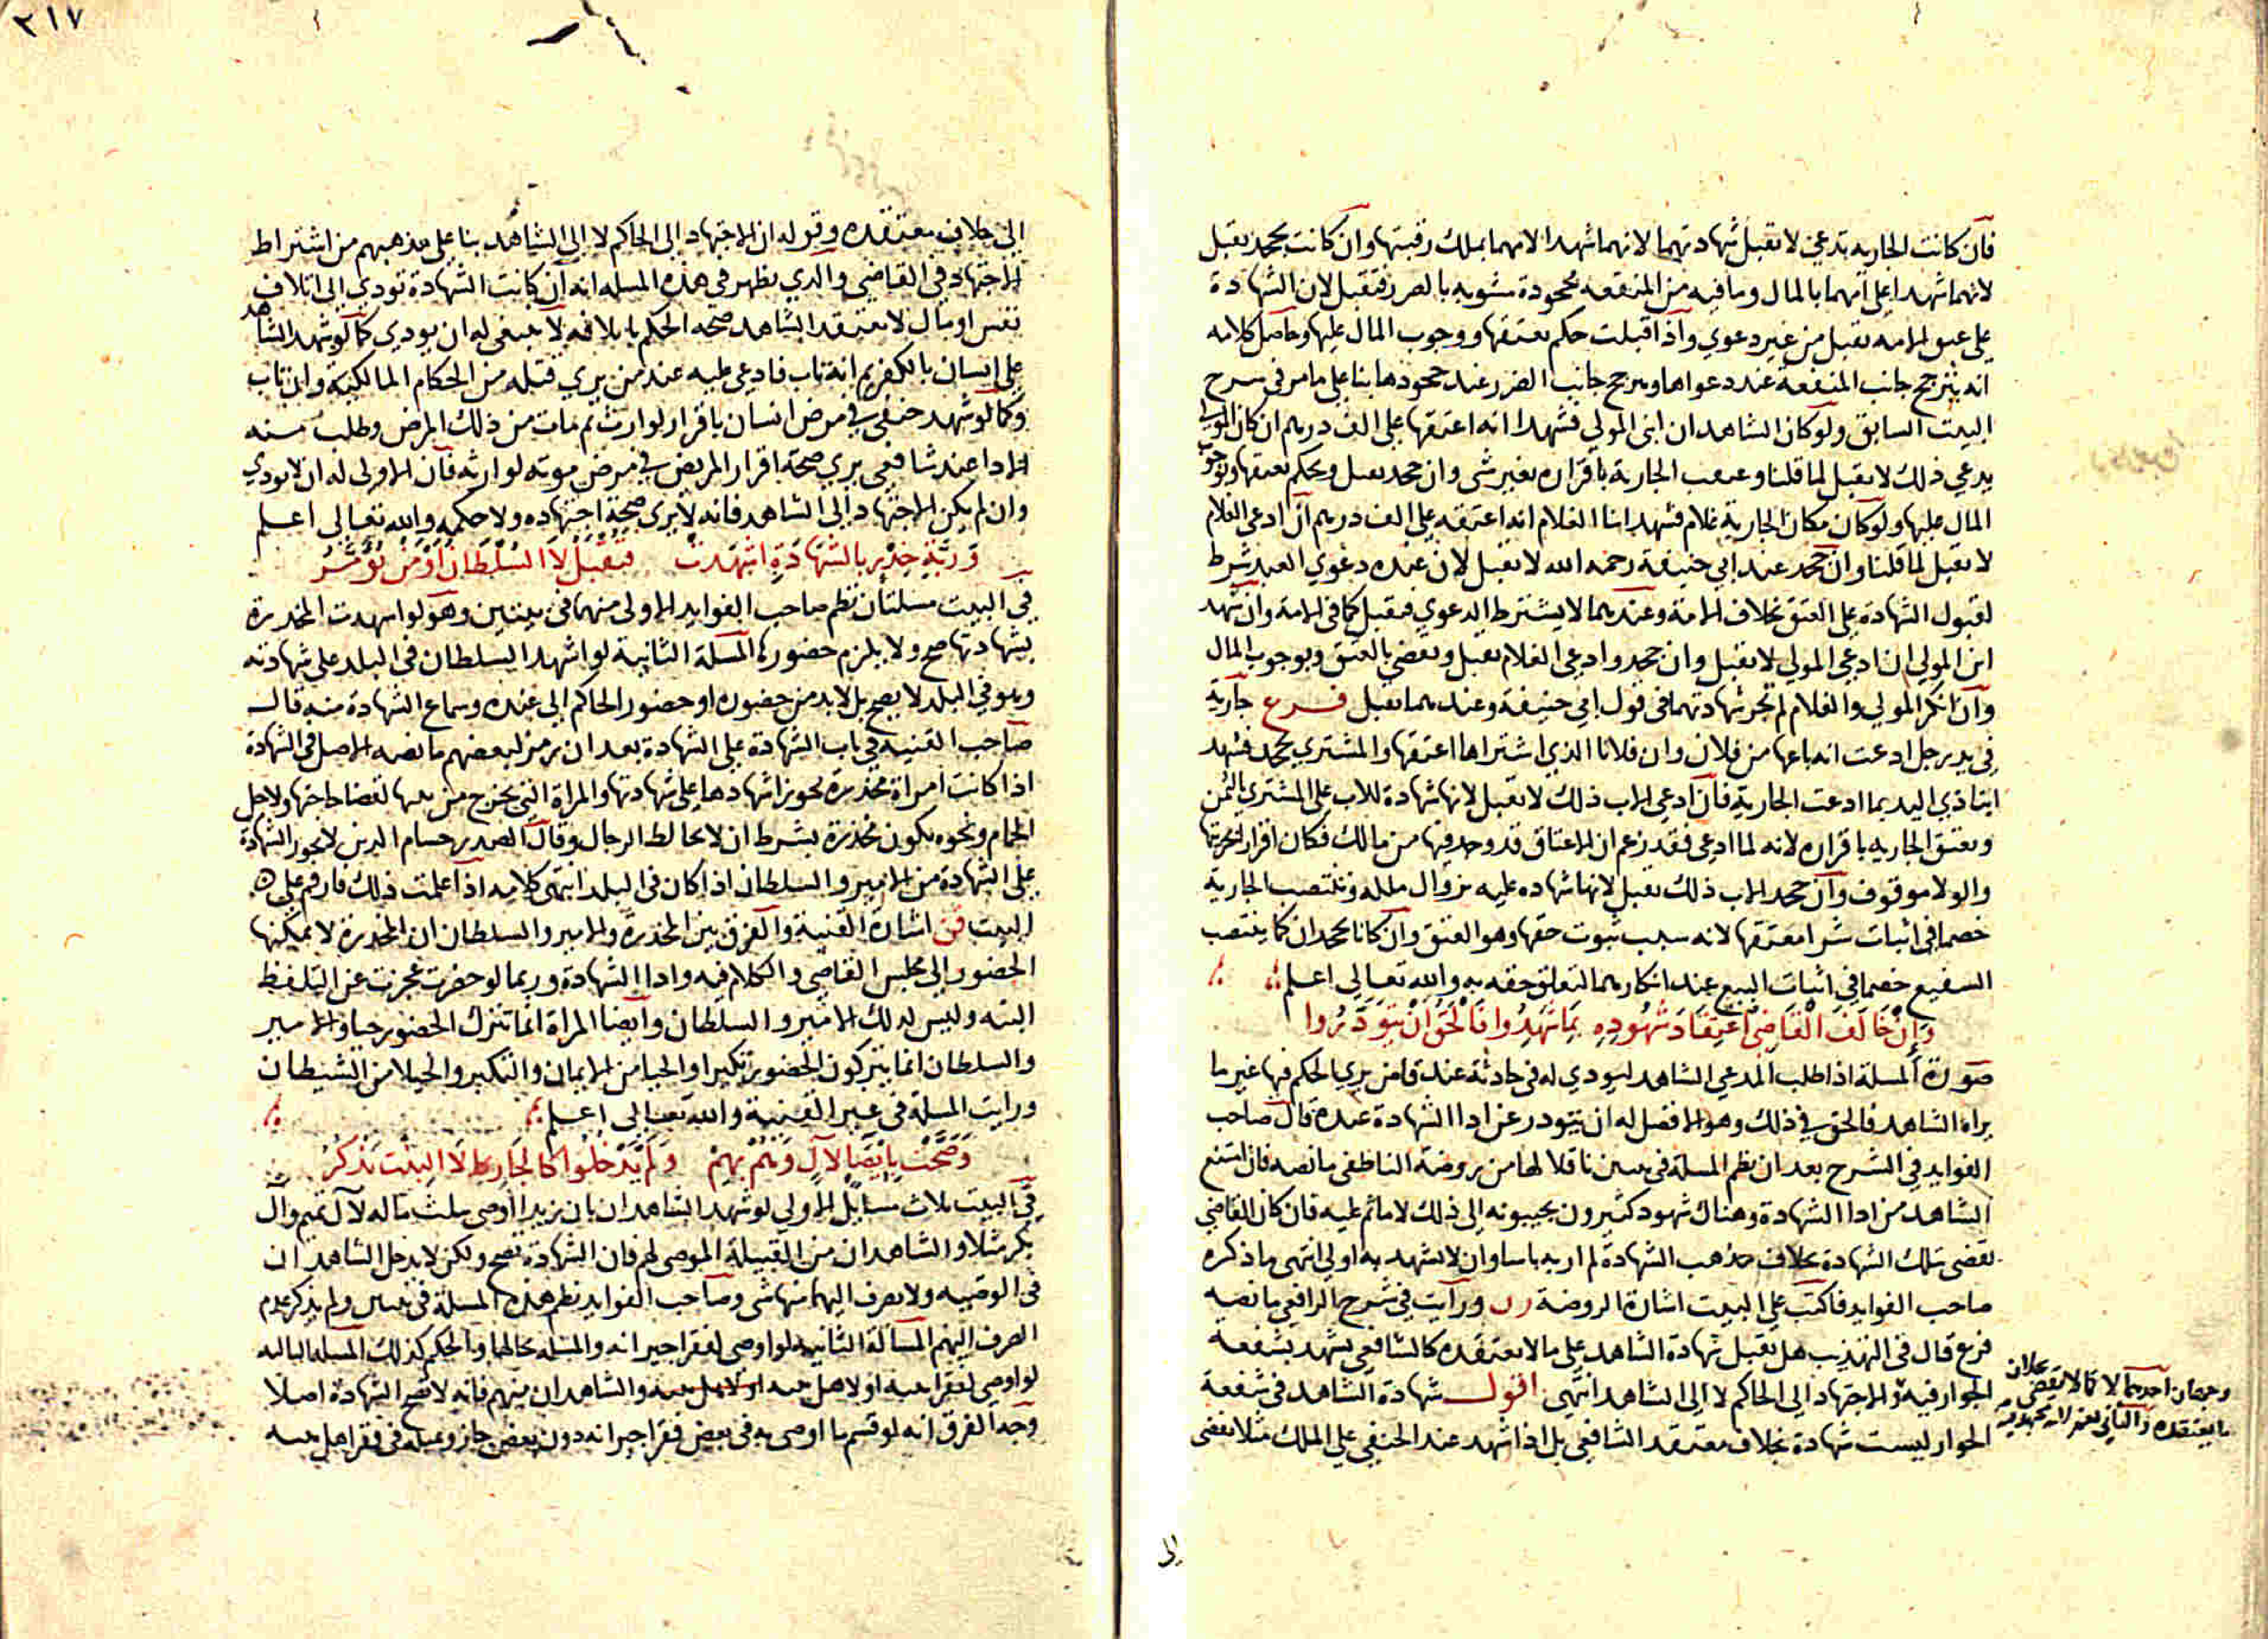 فان كانت الجاريه تدعي لا تقبل شهادتهما لانهما شهدا لامهما بملك رقبتها وان كانت تجحد تقبل
لانهما شهدا على امهما بالمال وما فيه من المنفعه مجحودة مشوبه بالضرر فتقبل لان الشهادة
على عتق الامه تقبل من غير دعوي واذا قبلت حكم بعتقها ووجوب المال عليها وحاصل كلامه
انه يترجح جانب المنفعة عند دعواها ويترجح جانب الضرر عند جحودها بنا على ما مر في شرح
البيت السابق ولو كان الشاهدان ابنى المولي فشهدا انه اعتقها على الف درهم ان كان المولى
يدعي ذلك لا تقبل لما قلنا وعتقت الجارية باقراره بغير شى وان جحد تقبل ويحكم بعتقها وبوجوب
المال عليها ولو كان مكان الجارية غلام فشهد ابنا الغلام انه اعتقه على الف درهم ان ادعى الغلام
لا تقبل لما قلنا وان جحد عند ابي حنيفة رحمه الله لا تقبل لان عنده دعوي العبد شرط
لقبول الشهادة على العتق بخلاف الامة وعندهما لا يشترط الدعوي فتقبل كما في الامة وان شهد
ابن المولي ان ادعي المولي لا تقبل وان جحد وادعي الغلام تقبل ويقضي بالعتق وبوجوب المال
وان انكر المولي والغلام لم تجز شهادتهما في قول ابي حنيفة وعندهما تقبل فرع جارية
في يد رجل ادعت انه باعها من فلان وان فلانا الذي اشتراها اعتقها والمشتري يجحد فشهد
ابنا ذي اليد بما ادعت الجارية فان ادعي الاب ذلك لا تقبل لانها شهادة للاب على المشتري بالثمن
وتعتق الجاريه باقراره لانه لما ادعى فقد زعم ان الاعتاق قد وجد فيها من مالك فكان اقرارا بحريتها
والولا موقوف وان جحد الاب ذلك تقبل لانها شهاده عليه بزوال ملكه وتنتصب الجارية
خصما في اثبات شرا معتقها لانه سبب ثبوت حقها وهو العتق وان كانا يجحدان كما ينتصب
الشفيع خصما في اثبات البيع عند انكارهما لتعلق حقه به والله تعالى اعلم
وَاِنْ خَالَفَ القَاضِى اعتِقَادَ شُهُودِهِ بِمَا شَهِدُوا فَالْحَقُ اَنْ يَتوَذَّرُوا
صورة المسلة اذا طلب المدعي الشاهد ليودي له في حادثة عند قاض يري الحكم فيها غير ما
يراه الشاهد فالحق في ذلك وهو الافضل له ان يتوذر عن ادا الشهادة عنده قال صاحب
الفوايد في الشرح بعد ان نظم المسلة في بيتين ناقلا لها من روضة الناطفي ما نصه فان امتنع
الشاهد من ادا الشهادة وهناك شهود كثيرون يجيبونه الى ذلك لا ماثم عليه فان كان القاضي
يقضي بتلك الشهادة بخلاف مذهب الشهادة لم ار به باسا وان لا يشهد به اولي انتهى ما ذكره
صاحب الفوايد فاكتب على البيت اشارة الروضة رن ورايت في شرح الرافعي ما نصه
فرع قال في التهذيب هل تقبل شهادة الشاهد على ما لا يعتقده كالشافعي يشهد بشفعة
الجوار فيه والاجتهاد الى الحاكم لا الى الشاهد انتهى اقول شهادة الشاهد في شفعة
الجوار ليست شهادة بخلاف معتقد الشافعي بل اذا شهد عند الحنفي على الملك مثلا يقضى
وجهان احدهما لا كما لا يقضي بخلاف
ما يعتقده والثاني نعم لانه مجتهد فيه
الى
٢١٧
الى خلاف معتقده وقوله ان الاجتهاد الى الحاكم لا الى الشاهد بنا على مذهبهم من اشتراط
الاجتهاد في القاضي والذي يظهر في هذه المسله انه ان كانت الشهادة تودي الى اتلاف
نفس او مال لا يعتقد الشاهد صحه الحكم باتلافه لا ينبغى له ان يودي كما لو شهد الشاهد
على انسان بالكفر ثم انه تاب فادعى عليه عند من يري قتله من الحكام المالكية وان تاب
وكما لو شهد حنفى في مرض انسان باقرار لوارث ثم مات من ذلك المرض وطلب منه
الادا عند شافعي يري صحة اقرار المريض في مرض موته لوارثه فان الاولى له ان لا يودي
وان لم يكن الاجتهاد الى الشاهد فانه لا يرى صحة اجتهاده ولا حكمه والله تعالى اعلم
وَرَبَّةِ خِدْرٍ بالشهادَةِ اشهَدَتْ فتقبَلْ لا السُّلْطَانُ اَوْ مَنْ يُؤَمَّرُ
في البيت مسلتان نظم صاحب الفوايد الاولى منهما في بيتين وهو لو اشهدت المخدرة
بشهادتها صح ولا يلزم حضورها المسلة الثانية لو اشهد السلطان في البلد على شهادته
وهو في البلد لا يصح بل لا بد من حضوره او حضور الحاكم الى عنده وسماع الشهادة منه قال
صاحب القنيه في باب الشهادة على الشهادة بعد ان رمز لبعضهم ما نصه الاصل في الشهادة
اذا كانت امراة مخدرة يجوز اشهادها على شهادتها والمراة التي تخرج من بيتها لقضا حاجتها ولاجل
الحمام ونحوه تكون مخدرة بشرط ان لا تخالط الرجال وقال الصدر حسام الدين لا يجوز الشهادة
على الشهادة من الامير والسلطان اذا كان في البلد انتهى كلامه اذا علمت ذلك فارقم على
البيت قن اشارة القنية والفرق بين المخدرة والامير والسلطان ان المخدرة لا يمكنها
الحضور الى مجلس القاضي والكلام فيه وادا الشهادة وربما لو حضرت عجزت عن التلفظ
البته وليس كذلك الامير والسلطان وايضا المراة انما تترك الحضور حيا والامير
والسلطان انما يتركون الحضور تكبرا والحيا من الايمان والتكبر والخيلا من الشيطان
ورايت المسلة في غير القنية والله تعالى اعلم
وَصَحَّتْ بِايْصَا لآلٍ وَهُمْ بِهِمْ وَلَم يَدْخلوا كالجَارِ لا البَيْت تذكرُ
في البيت ثلاث مسايل الاولى لو شهد الشاهدان بان زيدا اوصى بثلث ماله لآل تميم وآل
بكر مثلا والشاهدان من القبيلة الموصى لهم فان الشهادة تصح ولكن لا يدخل الشاهدان
في الوصيه ولا يصرف اليهما منها شى وصاحب الفوايد نظم هذه المسلة في بيتين ولم يذكر عدم
الصرف اليهم المسالة الثانية لو اوصى لفقرا جيرانه والمسله بحالها والحكم كذلك المسلة الثالثه
لو اوصي لفقرا بيته او لاهل بيته والشاهدان منهم فانه لا تصح الشهادة اصلا
وجه الفرق انه لو قسم ما اوصى به في بعض فقرا جيرانه دون بعض جاز ومثله في فقرا اهل بيته